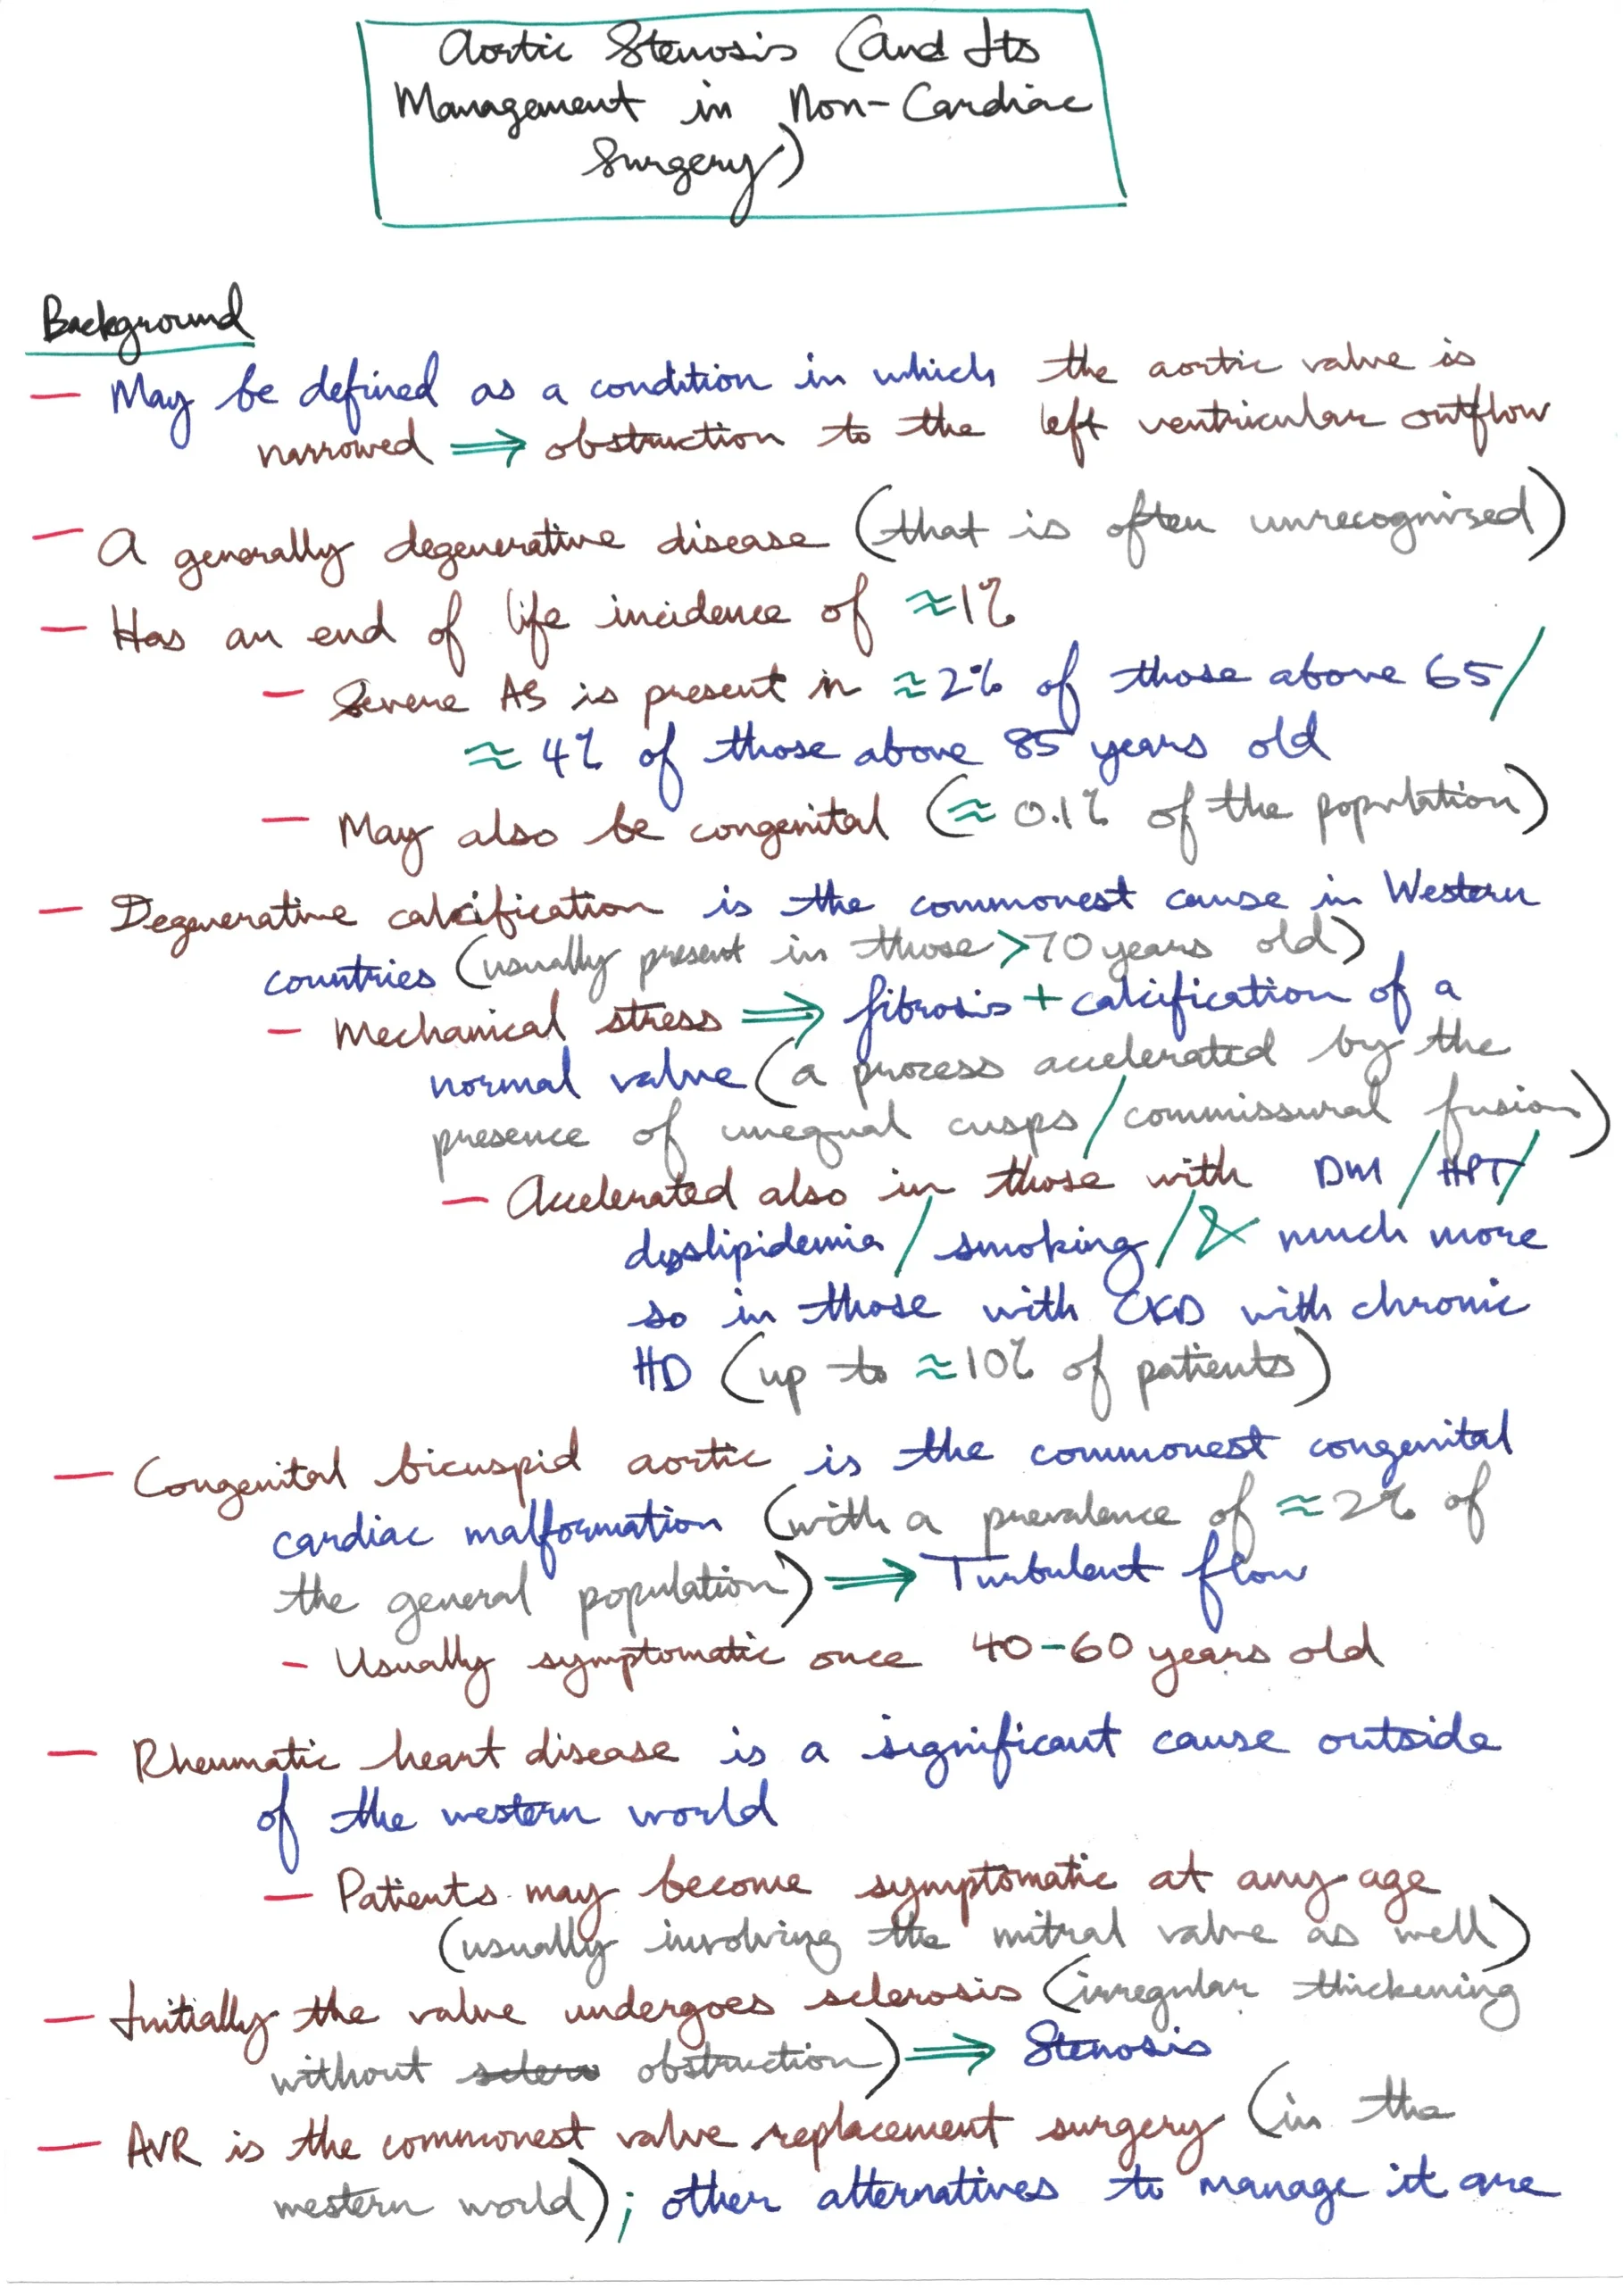 Aortic Stenosis (and Its
Management in Non-Cardiac
Surgery)
Background
— May be defined as a condition in which the aortic valve is
narrowed ⇒ obstruction to the left ventricular outflow
— A generally degenerative disease (that is often unrecognised)
— Has an end of life incidence of ≈1%
— Severe AS is present in ≈2% of those above 65/
≈ 4% of those above 85 years old
— May also be congenital (≈ 0.1% of the population)
— Degenerative calcification is the commonest cause in Western
countries (usually present in those >70 years old)
— Mechanical stress ⇒ fibrosis + calcification of a
normal valve (a process accelerated by the
presence of unequal cusps / commissural fusion)
— Accelerated also in those with DM / HPT/
dyslipidemia / smoking / & much more
so in those with CKD with chronic
HD (up to ≈10% of patients)
— Congenital bicuspid aortic is the commonest congenital
cardiac malformation (with a prevalence of ≈2% of
the general population) ⇒ Turbulent flow
- Usually symptomatic once 40-60 years old
— Rheumatic heart disease is a significant cause outside
of the western world
— Patients may become symptomatic at any age
(usually involving the mitral valve as well)
— Initially the valve undergoes sclerosis (irregular thickening
without obstruction) ⇒ Stenosis
— AVR is the commonest valve replacement surgery (in the
western world); other alternatives to manage it are